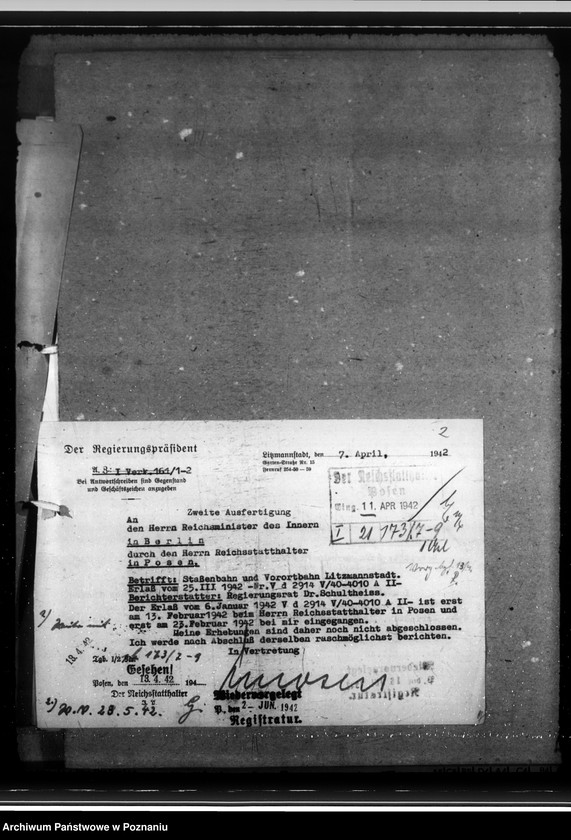 2
Der Regierungspräsident
W.S: I Verk. 161/1-2
Bei Antwortschreiben sind Gegenstand
und Geschäftszeichen anzugeben
Litzmannstadt, den 7. April, 1942
Garten-Straße Nr. 15
Fernruf
Der Reichsstatthalter
Posen
Eing. 11. APR 1942
I 21 173/7-9
Zweite Ausfertigung
An
den Herrn Reichsminister des Innern
in Berlin
durch den Herrn Reichsstatthalter
in Posen.
Betrifft: Staßenbahn und Vorortbahn Litzmannstadt.
Erlaß vom 25.III 1942 -Nr.V d 2914 V/40-4010 A II-
Berichterstatter: Regierungsrat Dr.Schultheiss.
Der Erlaß vom 6.Januar 1942 V d 2914 V/40-4010 A II- ist erst
am 13. Februar1942 beim Herrn Reichsstatthalter in Posen und
erst am 25.Februar 1942 bei mir eingegangen.
Meine Erhebungen sind daher noch nicht abgeschlossen.
Ich werde nach Abschluß derselben raschmöglichst berichten.
In Vertretung
173/2-9
Gesehen!
Posen, den 13.4.42 194
Der Reichsstatthalter
2) 28.5.42.
Wiedervorgelegt
P., den 2- JUN. 1942
Registratur.
Archiwum Państwowe w Poznaniu